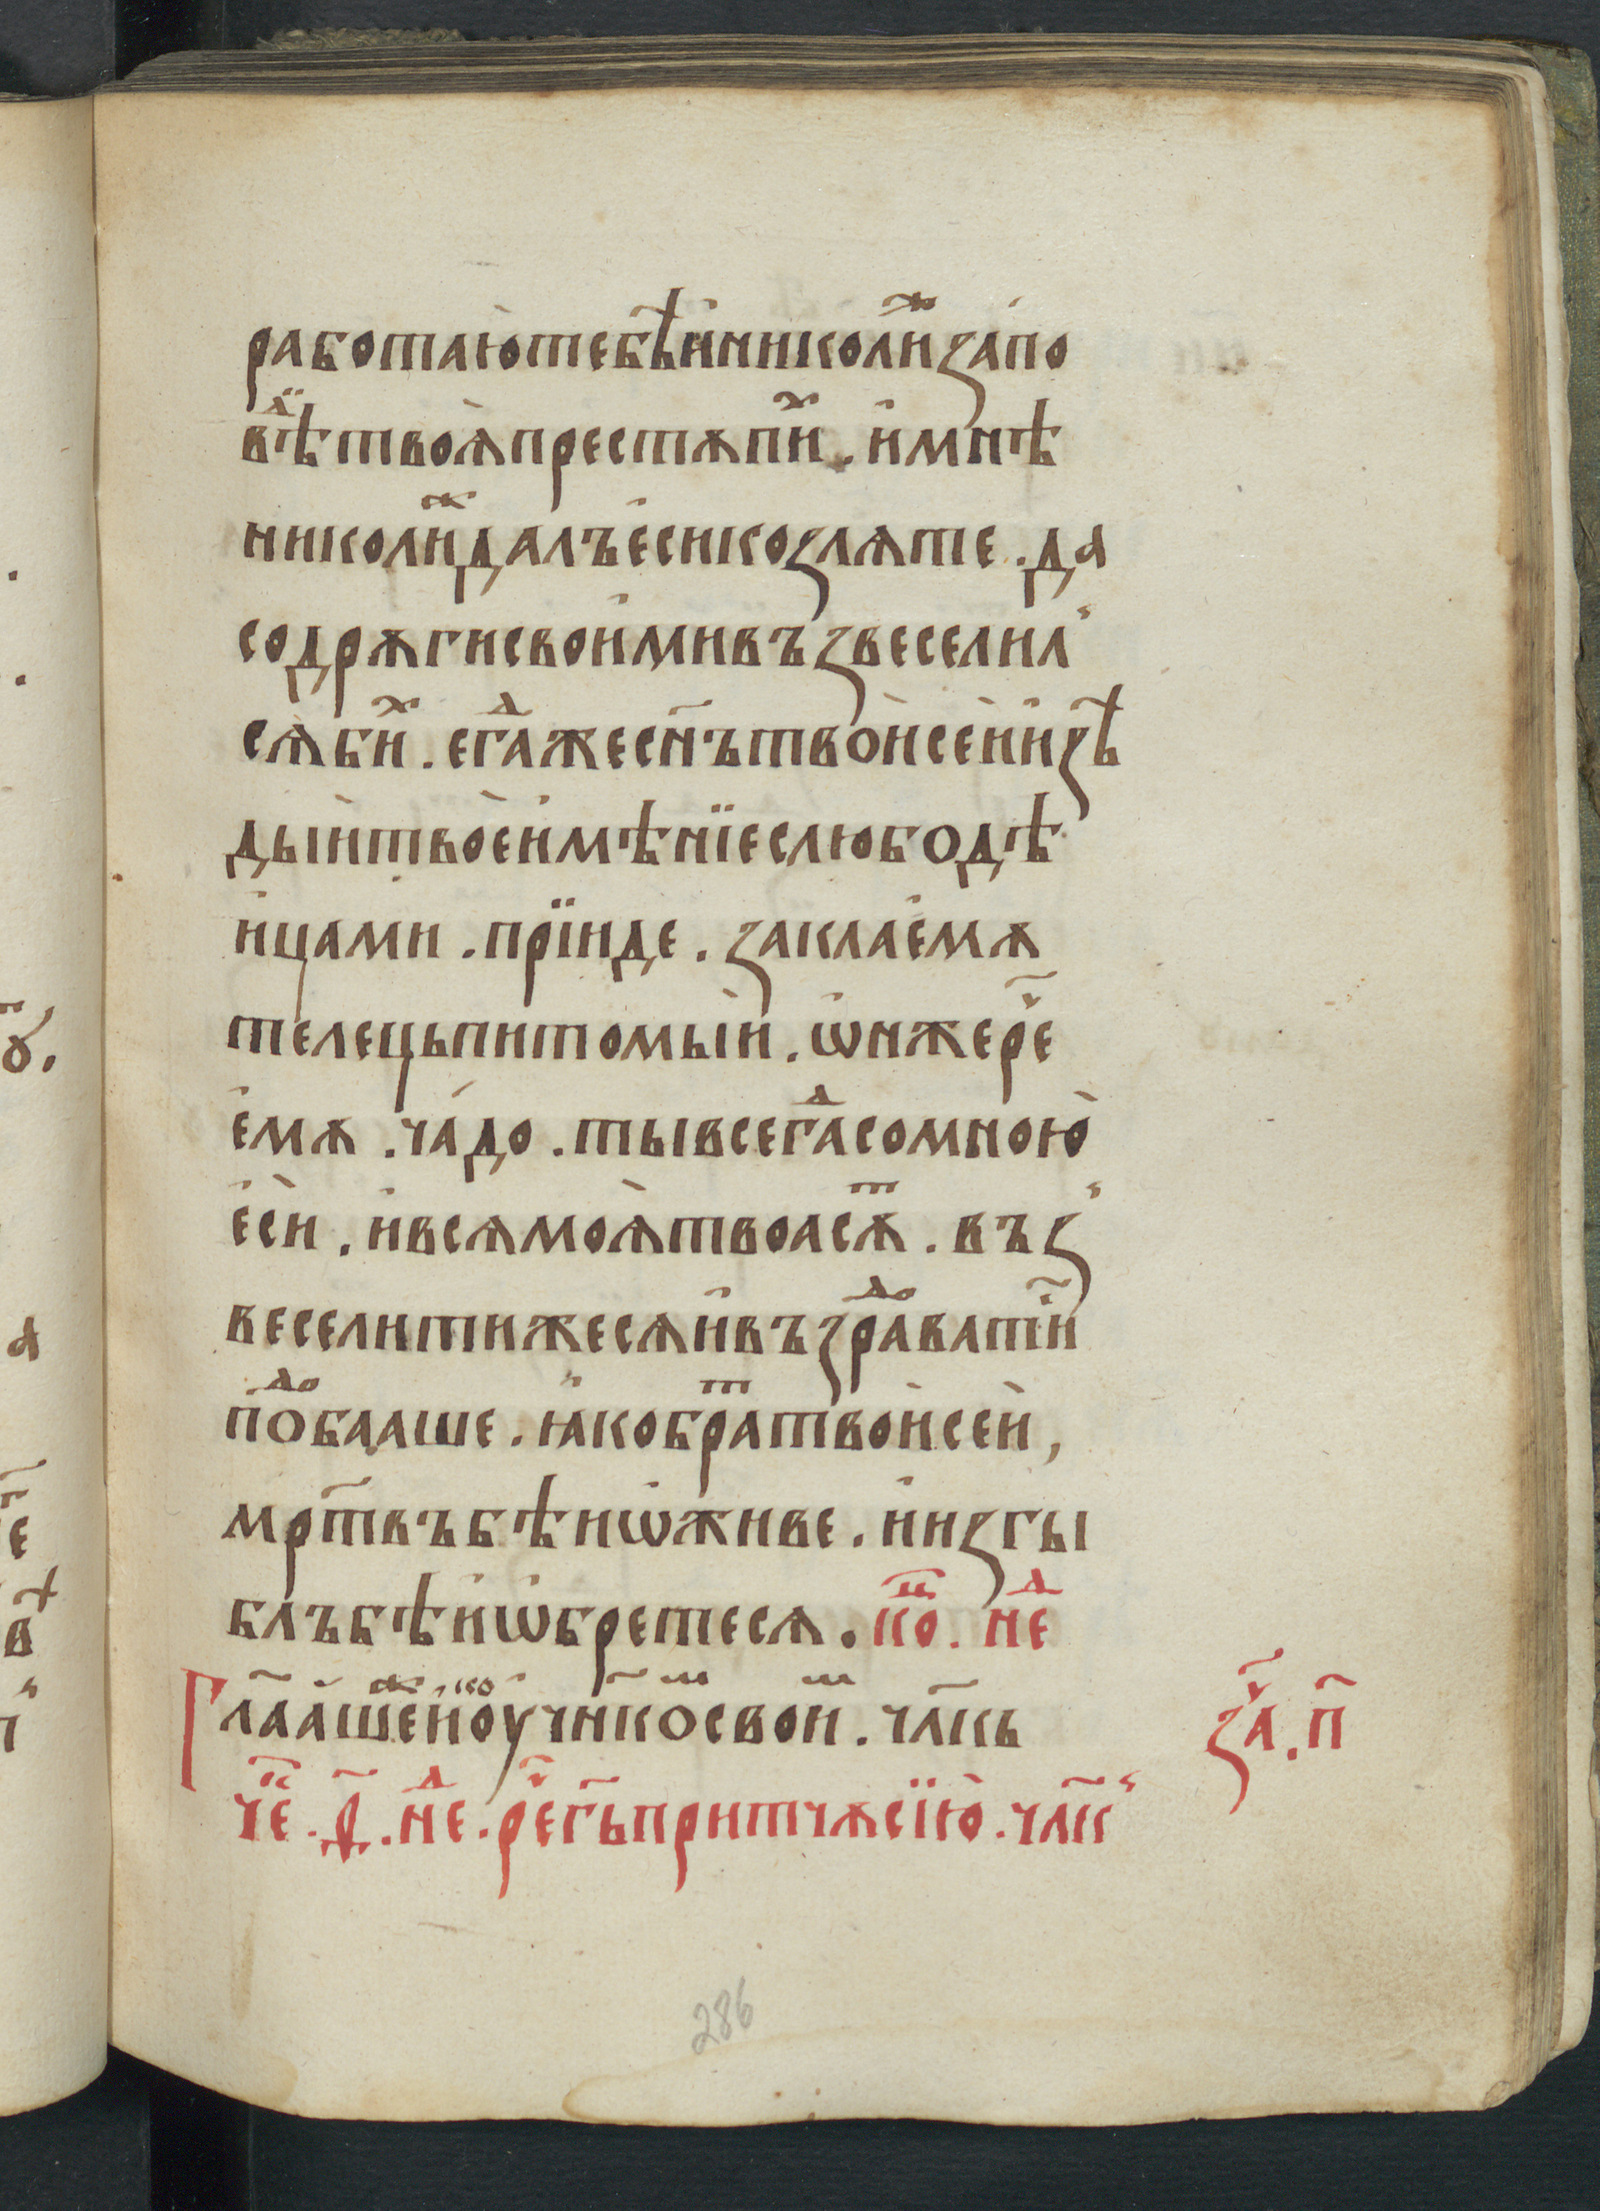 работаютебѣиниколиⷤзапо
вѣⷣтвоѧпрестѫпиⷯ. имнѣ
николиⷤдалъесикозлѧте. да
содрѫгисвоимивъзвеселил
сѧбиⷯ. егⷣажесн҃ътвоисеиизѣ
дыитвоеимѣнїеслюбодѣ
ицами. прїиде. заклаемꙋ
телецьпитомыи. ѡнжереⷱ҇
емꙋ. чадо. тывсегⷣасомною
еси. ивсѧмоѧтвоасѫⷮ. въз
веселитижесѧивъзраⷣвати
поⷣбааше. ꙗкобраⷮтвоисеи,
мрт҃въбѣиѡживе. иизгы
блъбѣиѡбретесѧ. коⷰ. неⷣ
Гл҃аашеⷤиоучн҃коⷨсвоиⷨ. чл҃къ
заⷱ. п҃
чеⷦ. д҃. неⷣ. реⷱгь҃притчѫсїю. чл҃к
286